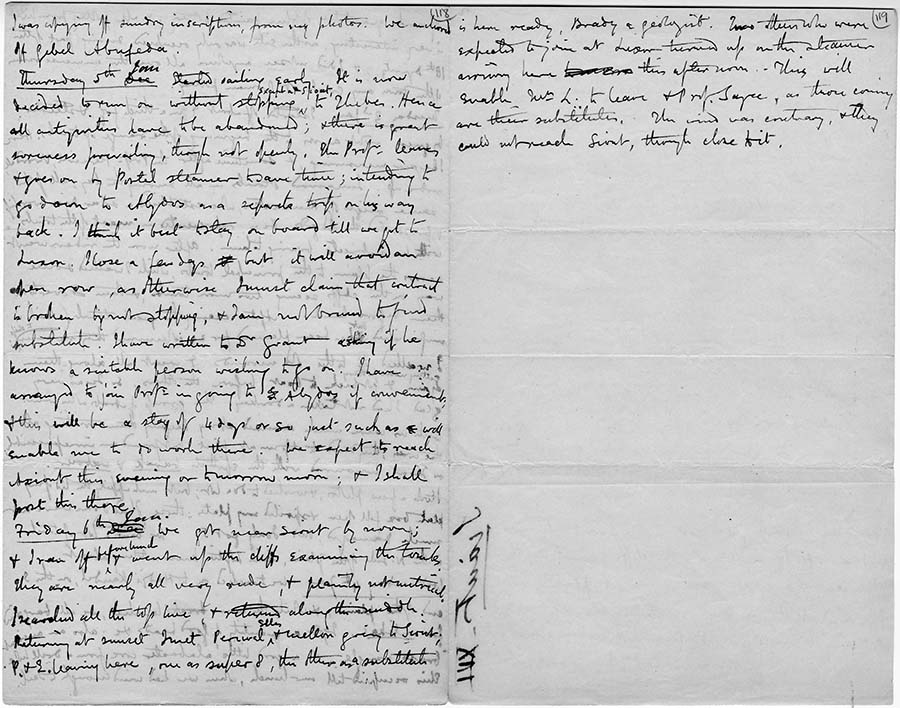 118
I was copying off sundry inscriptions from my photos. We anchored
off Gebel Abufeda.
Thursday 5th Dec Jan Started sailing early. It is now
decided to run on without stopping, except at Siout, to Thebes. Hence
all antiquities have to be abandoned; & there is great
soreness prevailing, though not openly. The Profr. leaves
& goes on by Postal steamer to save time; intending to
go down to Abydos as a separate trip on his way
back. I think it best to stay on board till we get to
Luxor; I lose a few days but it will avoid an
open row, as otherwise I must claim that contract
is broken by not stopping, & I am not bound to find
substitute. I have written to Dr Grant asking if he
knows a suitable person wishing to go on. I have
arranged to join Profr. in going to Abydos if convenient
& this will be a stay of 4 days or so just such as will
enable me to do work there. We expect to reach
Assiout this evening or tomorrow noon; & I shall
post this there.
Friday 6th Dec Jan. We got near Siout by noon;
& I ran off & went up the cliffs examining the tombs.
They are nearly all very rude, & plainly not
I searched all the top line, & returned along the middle.
Returning at sunset I met Percival, & going to Siout;
P. & E. leaving here, one as super 8, the other as a substitute
119
is here ready, Brady a geologist. Two others who were
expected to join at Luxor turned up on the steamer
arriving here this afternoon. This will
enable Mr L. to leave & Prof. Sayce, as those coming
are their substitutes. The wind was contrary, & they
could not reach Siout, though close to it.
XVI